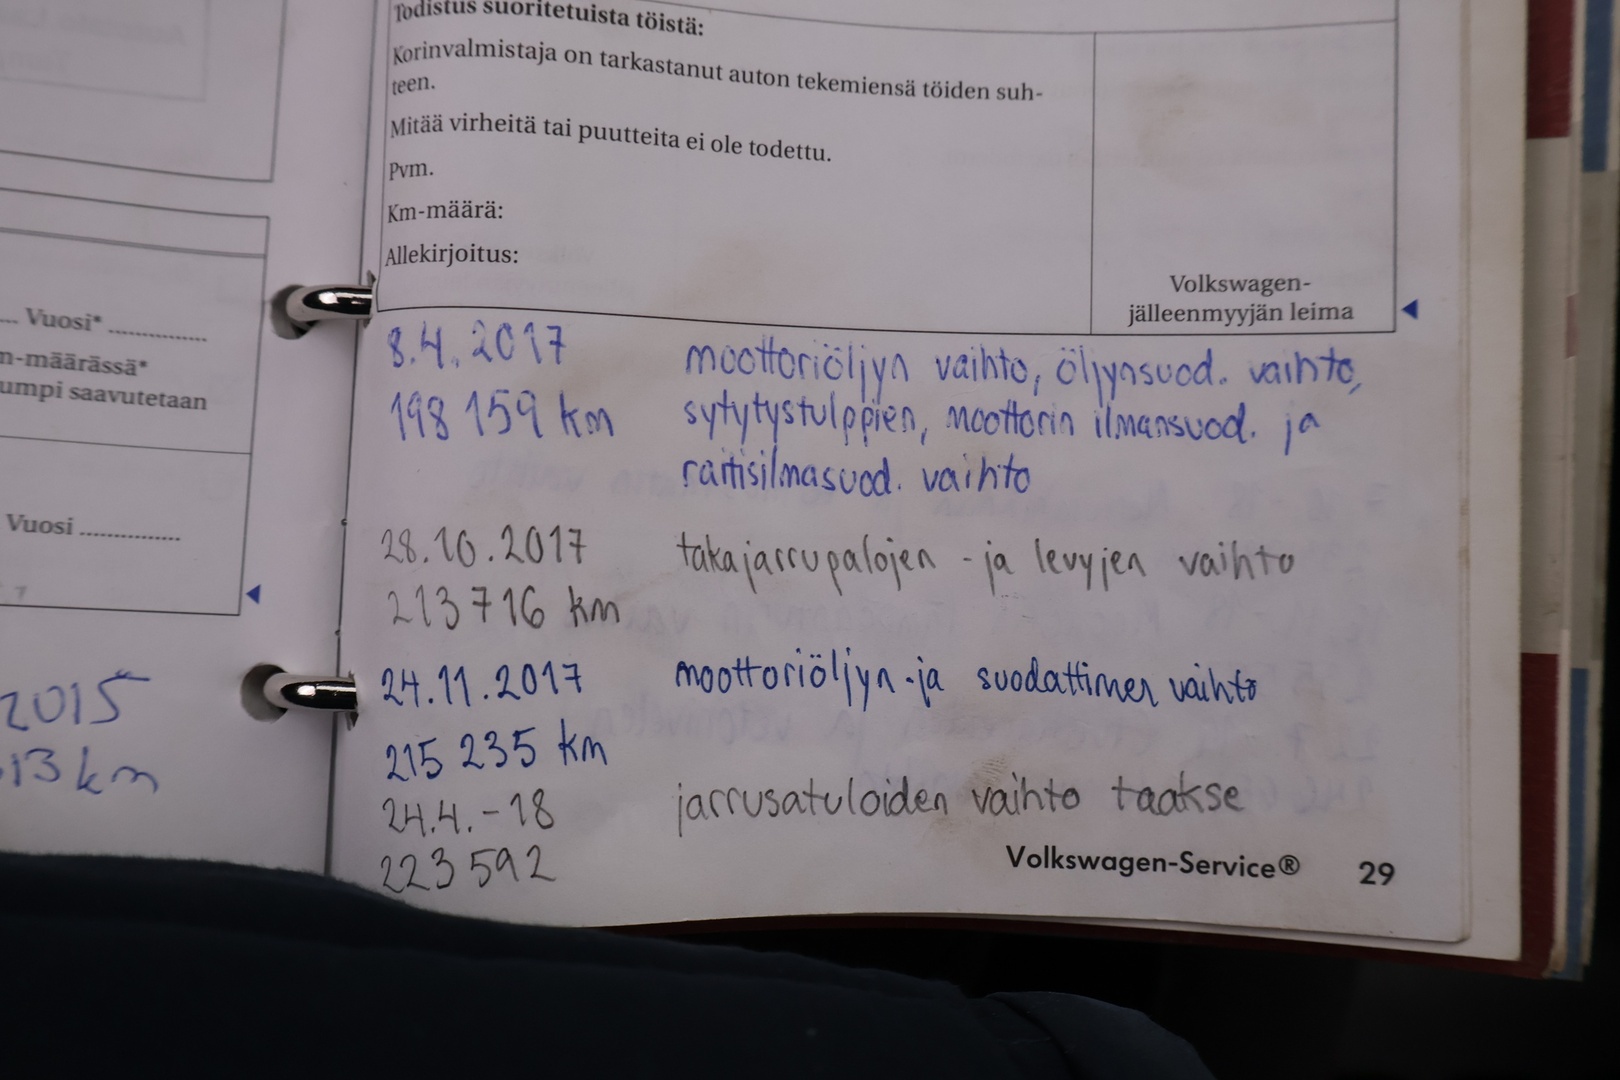 Todistus suoritetuista töistä:
Korinvalmistaja on tarkastanut auton tekemiensä töiden suh-
teen.
Mitää virheitä tai puutteita ei ole todettu.
Pvm.
Km-määrä:
Allekirjoitus:
Volkswagen-
jälleenmyyjän leima
... Vuosi* ..............
m-määrässä*
umpi saavutetaan
Vuosi ...............
2015
13 km
8.4.2017 moottoriöljyn vaihto, öljynsuod. vaihto,
198 159 km sytytystulppien, moottorin ilmansuod. ja
raitisilmasuod. vaihto
28.10.2017 takajarrupalojen - ja levyjen vaihto
213 716 km
24.11.2017 moottoriöljyn - ja suodattimen vaihto
215 235 km
24.4.-18 jarrusatuloiden vaihto taakse
223 592
Volkswagen-Service® 29